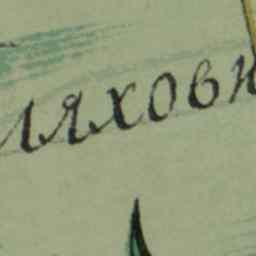 ляховн